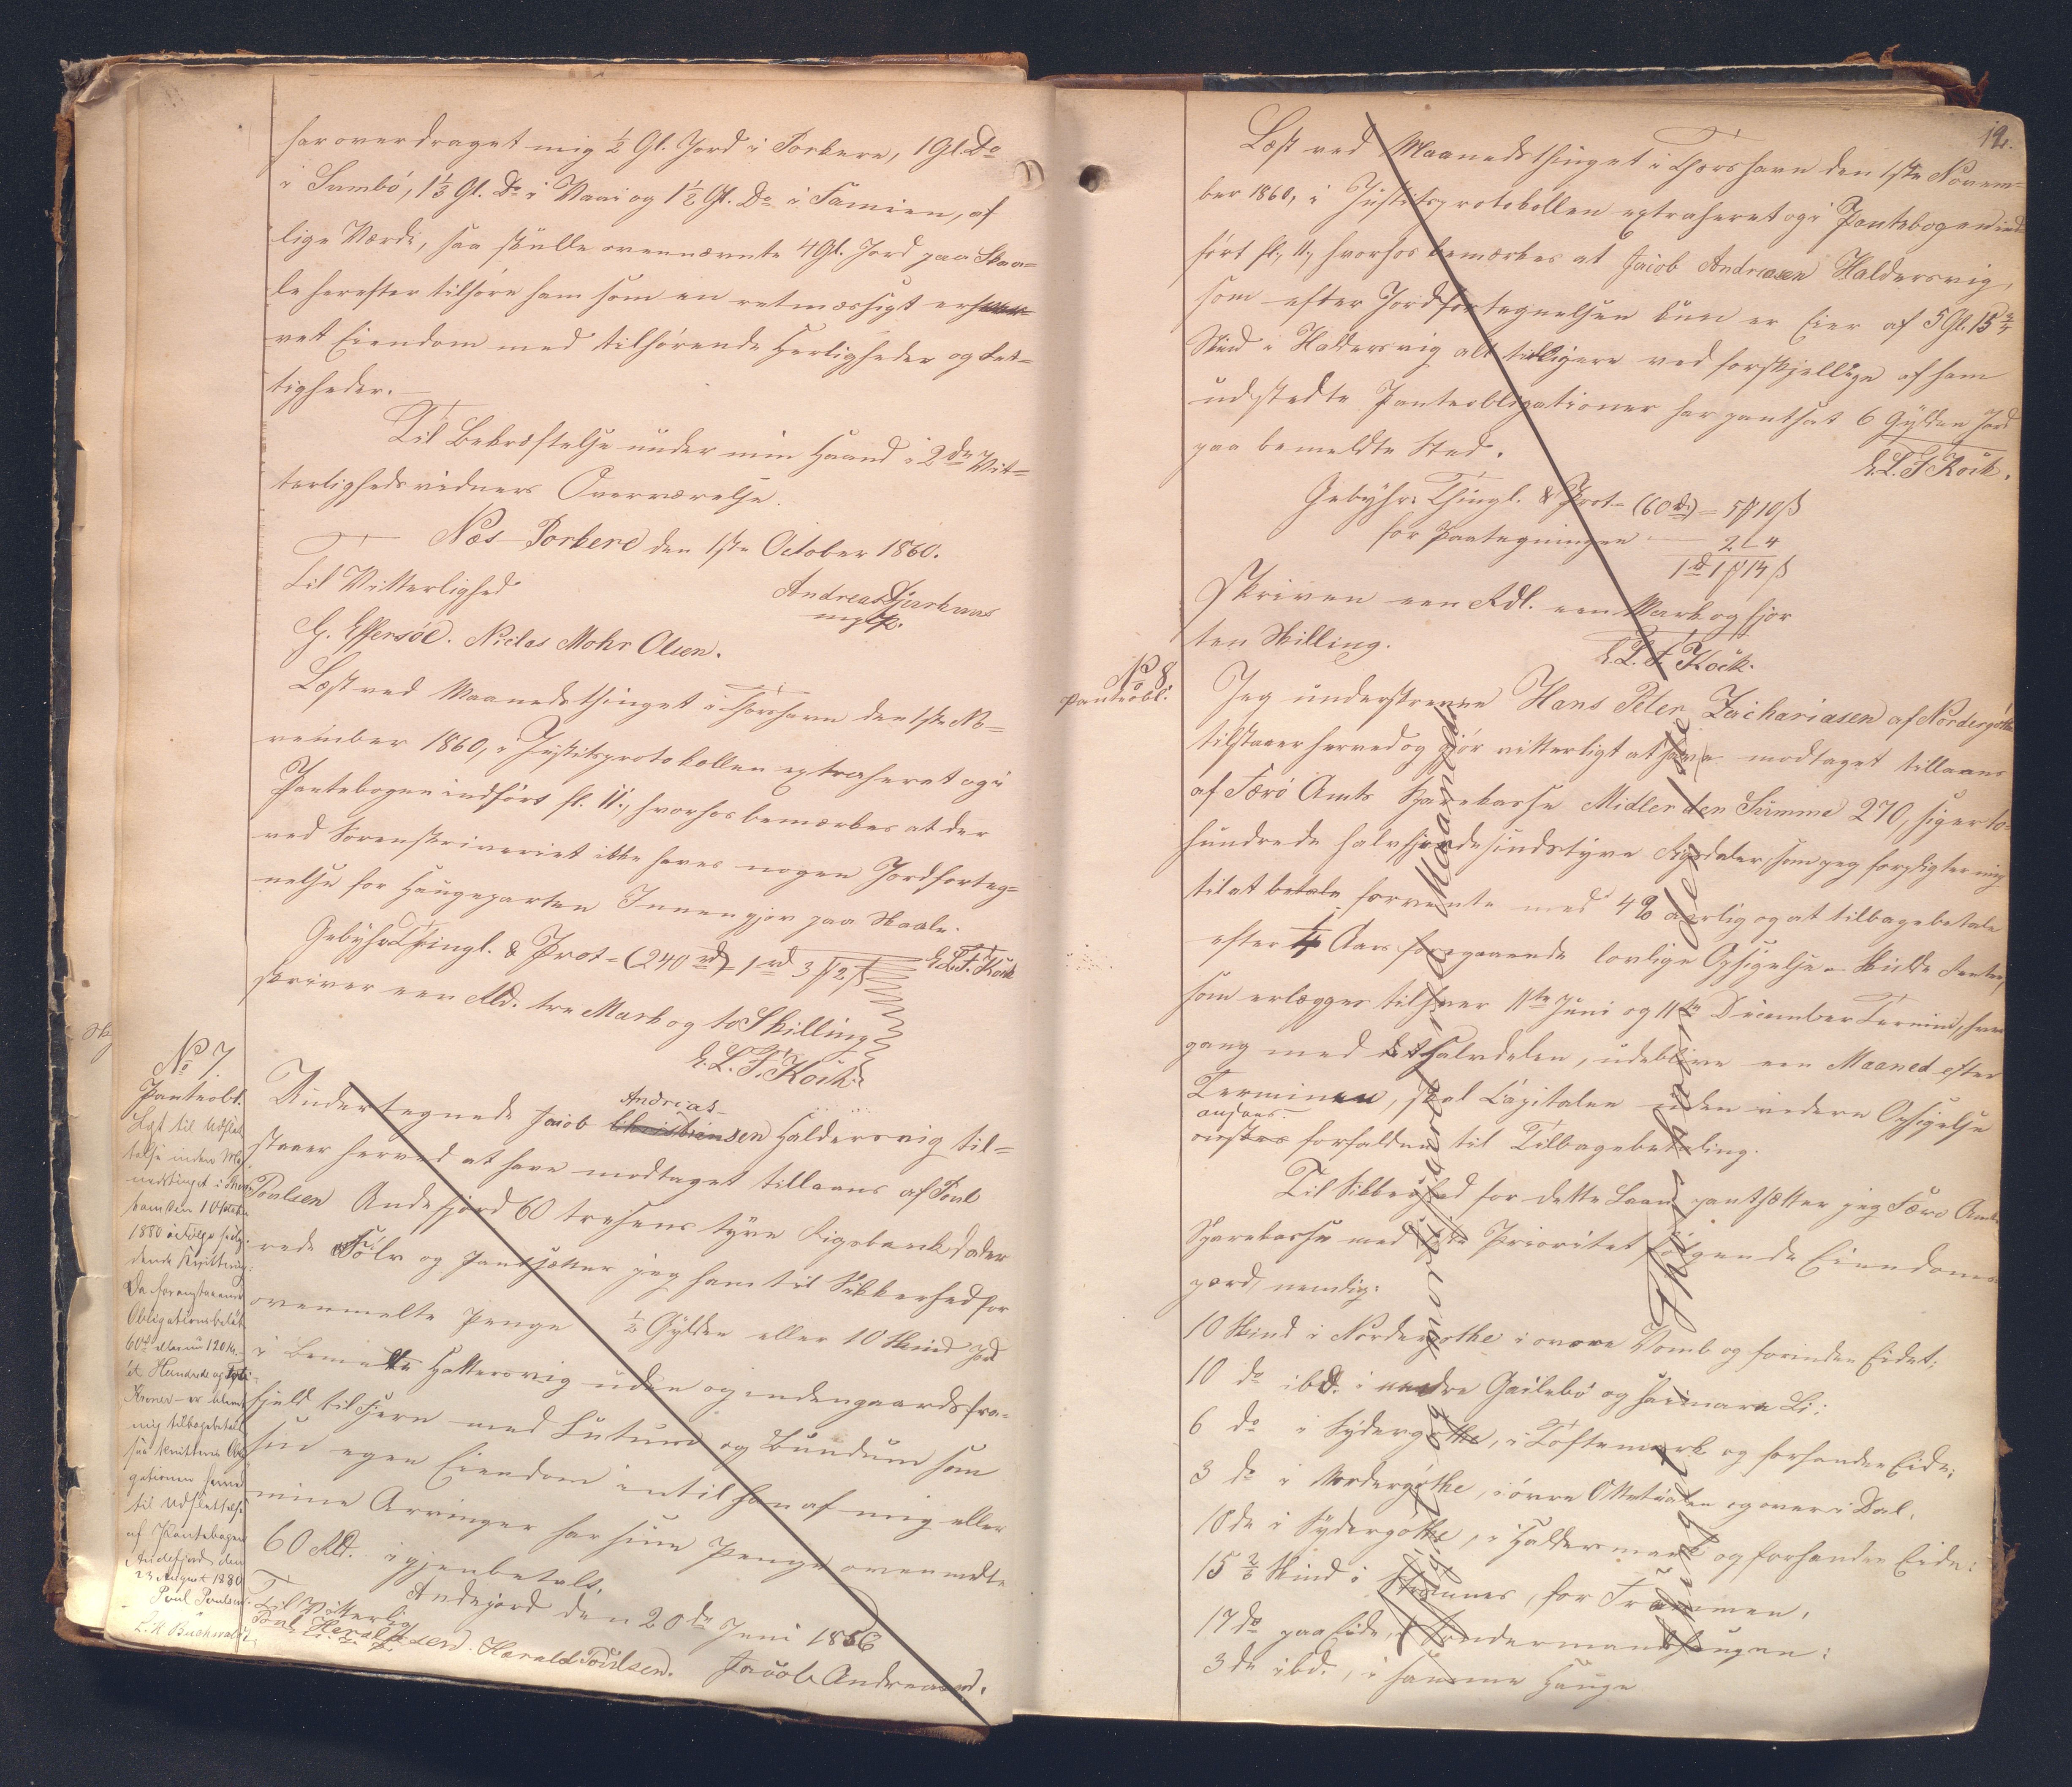 har overdraget mig ½ Gl. Jord i Porkere, 1 Gl. Do
i Sumbø, 1⅓ Gl. Do i Vaai og 1½ Gl. Do i Famien, af
lige Værdi, saa skulle ovennævnte 4 Gl. Jord paa Skaa-
le herefter tilhøre ham som en retmæssigt erhver-
vet Eiendom med tilhørende Herligheder og Ret-
tigheder.
Til Bekræftelse under min Haand i 2de Vit-
terlighedsvidners Overværelse.
Næs Porkere den 1ste October 1860.
Til Vitterlighed
Andreas Djurhuus
G. Effersöe. Niclas Mohr Olsen.
Læst ved Maanedsthinget i Thorshavn den 1ste No-
vember 1860, i Justitsprotokollen extraheret og i
Pantebogen indført fl. 11, hvorhos bemærkes at der
ved Sorenskriveriet ikke haves nogen Jordforteg-
nelse for Haugeparten Innengjov paa Skaale.
E. L. F. Kock
Gebyhr Thingl. & Prot- (240 rd) = 1 rd 3 ℳ 2 ß
skriver een Rd. tre Mark og to Skilling
E. L. F. Kock.
No 7.
Panteobl.
Lyst til Udslet
telse inden Ma
nedstinget i Thors
havn den 1 October
1880 ifølge følg
dende Kvittering:
Da foranstaaende
Obligationsbeløb
60 rd eller nu 120 Kr. -
et Hundrede og Tyve
Kroner - er bleven
mig tilbagebetalt
saa kvitteres Obli
gationen herved
til Udslettelse
af Pantebogen
Andefjord den
23 August 1880
Poul Poulsen.
L. H. Buchwaldt
Undertegnede Jacob Andreas- Christiansen Haldersvig til-
staaer herved at have modtaget tillaans af Poul
Poulsen Andefjord 60 tresens tyve Rigsbankdaler
rede Sølv og Pantsætter jeg ham til Sikkerhed for
ovenmelte Penge ½ Gylden eller 10 Skind Jord
i Bemelte Haldersvig uden og indengaards fra
Fjeld til Fjern med Lutum og Bundum som
sin egen Eiendom intil han af mig eller
mine Arvinger har sine Penge ovenmelte
60 Rd. igjenbetalt.
Andefjord den 20de Juni 1856
Til Vitterlig
Poul Heraldsen. Harald Poulsen. Jacob Andreasen.
19.
Læst ved Maanedsthinget i Thorshavn den 1ste Novem-
ber 1860, i Justitsprotokollen extraheret og i Pantebogen ind
ført fl. 11, hvorhos bemærkes at Jacob Andreasen Haldersvig,
som efter Jordfortegnelsen kun er Eier af 5 Gl. 15
Skind i Haldersvig alt tidligere ved forskjellige af ham
udstedte Panteobligationer har pantsat 6 Gylden Jord
paa bemeldte Sted.
E. L. F. Kock.
Gebyhr: Thingl. & Prot- (60 rd) = 5 ℳ 10 ß
for Paategningen 2 - 4
1 rd 1 ℳ 14 ß
Skriver een Rdl. een Mark og fjor
ten Skilling.
E. L. F. Kock.
No 8.
Panteobl.
Jeg underskrevne Hans Peter Zachariasen af Nordergøthe
tilstaaer herved og gjør vitterligt at have modtaget tillaans
af Færø Amts Sparekasse Midler den Summa 270, siger to
hundrede halvfjerdesindstyve Rigsdaler, som jeg forpligter mig
til at betale forrente med 4% aarlig og at tilbagebetale
efter ¼ Aars foregaaende lovlige Opsigelse. Skulde Renten,
som erlægges til hver 11te Juni og 11te December Termin, hver
gang med det Halvdelen, udeblive een Maaned efter
Terminen, skal Capitalen uden videre Opsigelse
ansees forfalden til Tilbagebetaling.
Til Sikkerhed for dette Laan pantsætter jeg Færø Amts
Sparekasse med 1ste Prioritet følgende Eiendoms
jord, nemlig:
10 Skind i Nordergøthe i øvre Vomb og forinden Eidet;
10 do ibd. i nedre Gailebø og
6 do i Sydergøthe, i Toftemark og forhanden Eide;
3 do i Nordergøthe, i øvre og over i Dal,
10 do i Sydergøthe, i Haldersmark og forhanden Eide:
15 Skind i
17 do paa Eide, i
3 do ibd., i samme Hauge
Thorshavn den 1ste